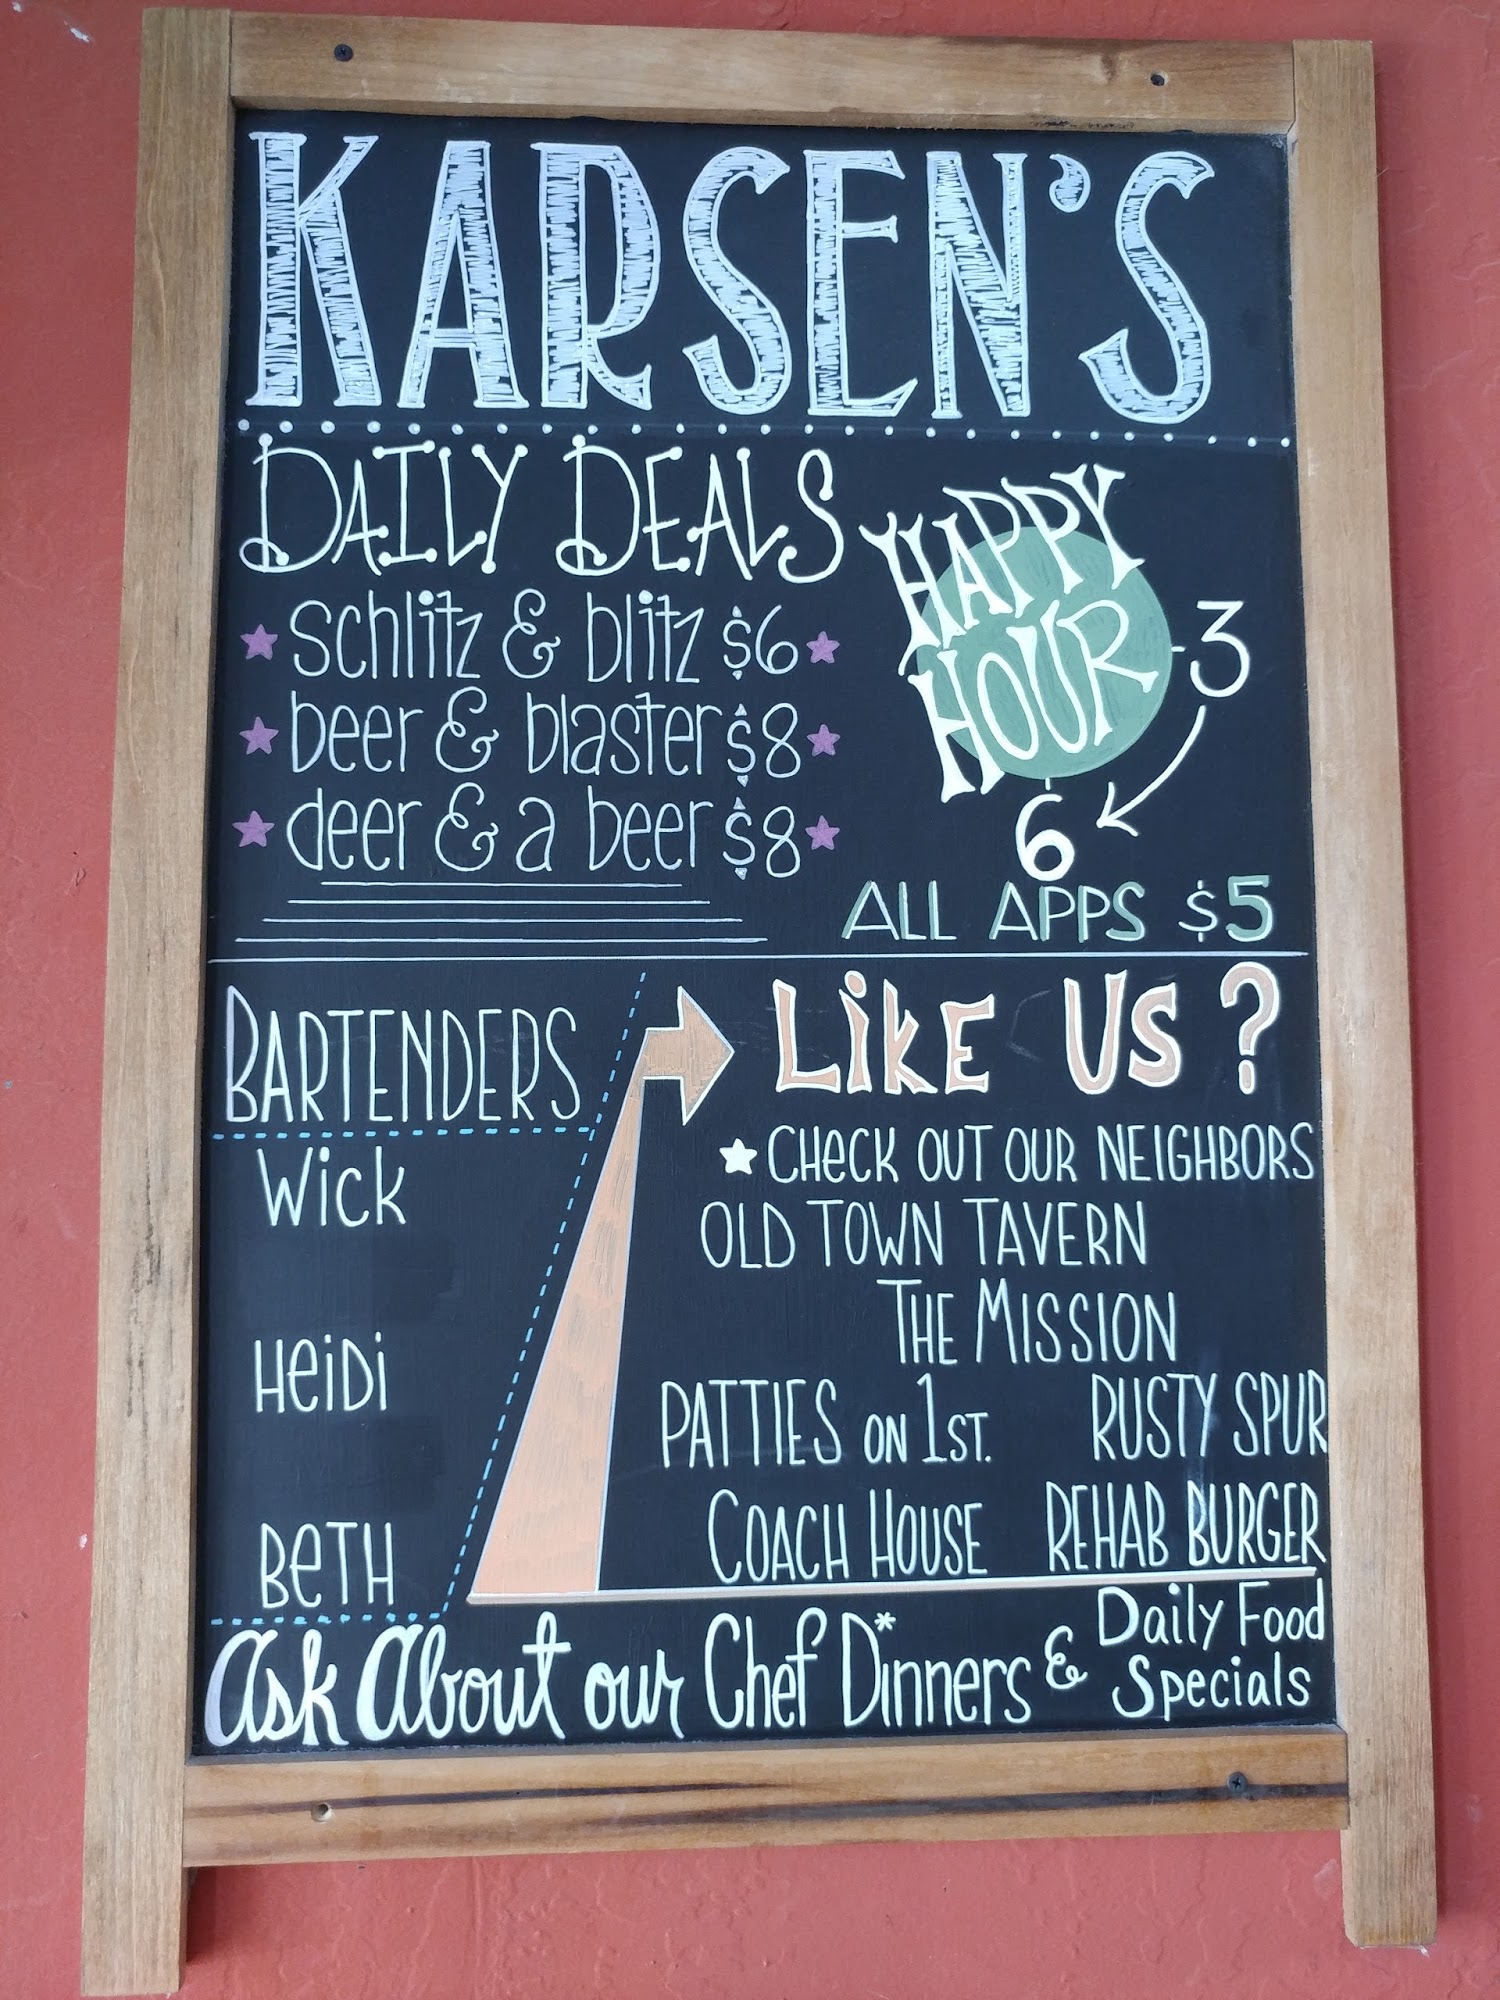 KARSEN'S
DAILY DEALS
schlitz & blitz $6
beer & blaster $8
deer & a beer $8
HAPPY
HOUR
3
6
ALL APPS $5
BARTENDERS
Wick
HeiDi
BeTH
Like Us?
CHecK OUT OUR NEIGHBORS
OLD TOWN TAVERN
THE MISSION
PATTIES ON 1ST. RUSTY SPUR
COACH HOUSE REHAB BURGER
Ask About our Chef Dinners* & Daily Food
Specials